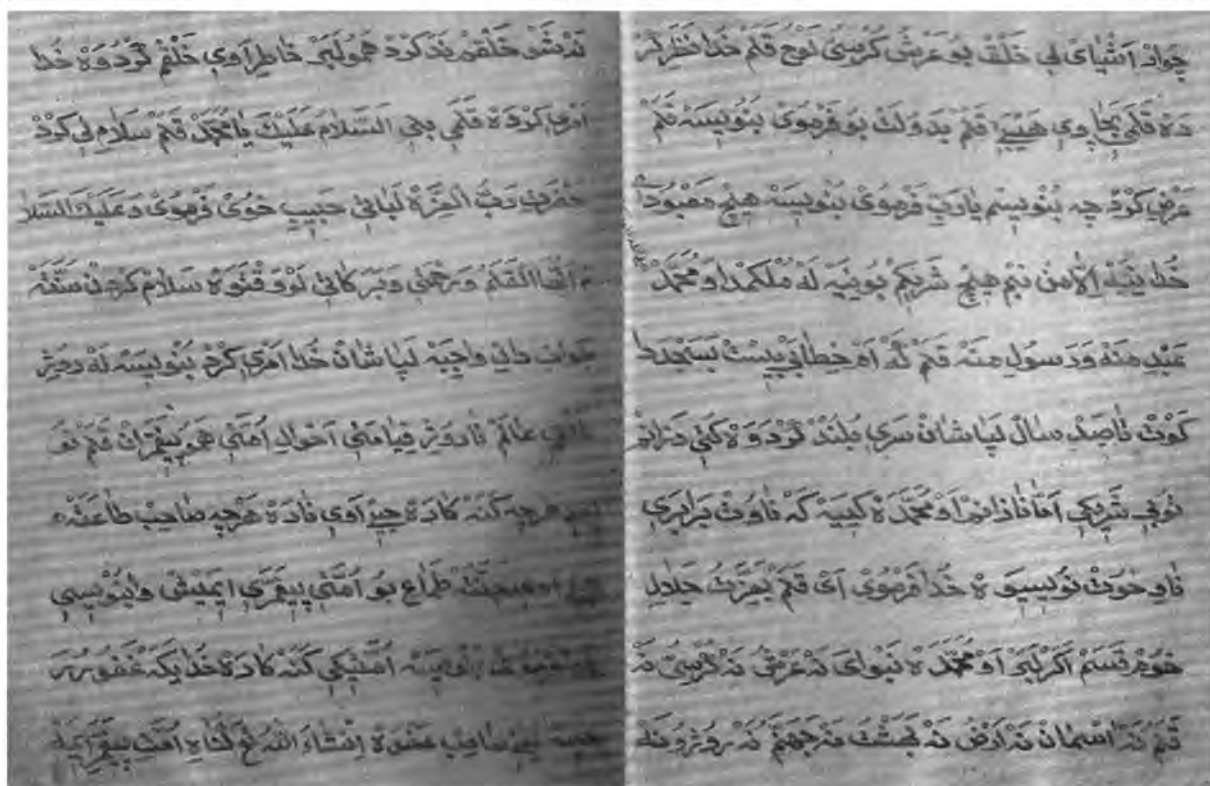 چواد اشیای لی خلق بو عرش کرسی لوح قلم خدا نظر کر
ده قلمی بجا وی قلم بدولت بو فرموی بنویسه قلم
عرض کرد چه بنویسم یا رب فرموی بنویسه هیچ معبودی
خدا نیه الا من نیم هیچ شریکم بونیه له ملکمدا و محمد
عبد منه و رسول منه قلم که ام خطابی بیست بسجده دا
کوت تا صد سال لپاشان سری بلند کردوه کتی دزانم
تو بی شریکی اما نازانم او محمده کییه که ناوت برابری
ناو خوت نویسیوه خدا فرموی ای قلم بعزت جلال
خوم قسم اکر لبر او محمده نبوای نه عرش نه کرسی نه
قلم نه اسمان نه ارض نه بهشت نه جهنم نه روژ و نه
خلقم ند کرد همو لبر خاطر اوی خلقم کردوه خدا
امری کرده قلمی بلی السلام علیک یا محمد قلم سلام لی کرد
حضرت رب العزة لباتی حبیب خوی فرموی و علیک السلا
م ایها القلم و رحمتی و برکاتی لو وقتوه سلام کردن سنته
جواب دانی واجبه لپاشان خدا امری کرد بنویسه له
عالم تا روژی قیامتی احوال امتی همو پیغمبران قلم
هرچه کنه کاره جیی اوی ناره هرچه صاحب طاعته
جیی اوی جنته بو امتی پیغمبری ایمیشی وا نویسی
امتیکی کنه کاره خدایکه غفور
ان شاء الله امت پیغمبری ایمه